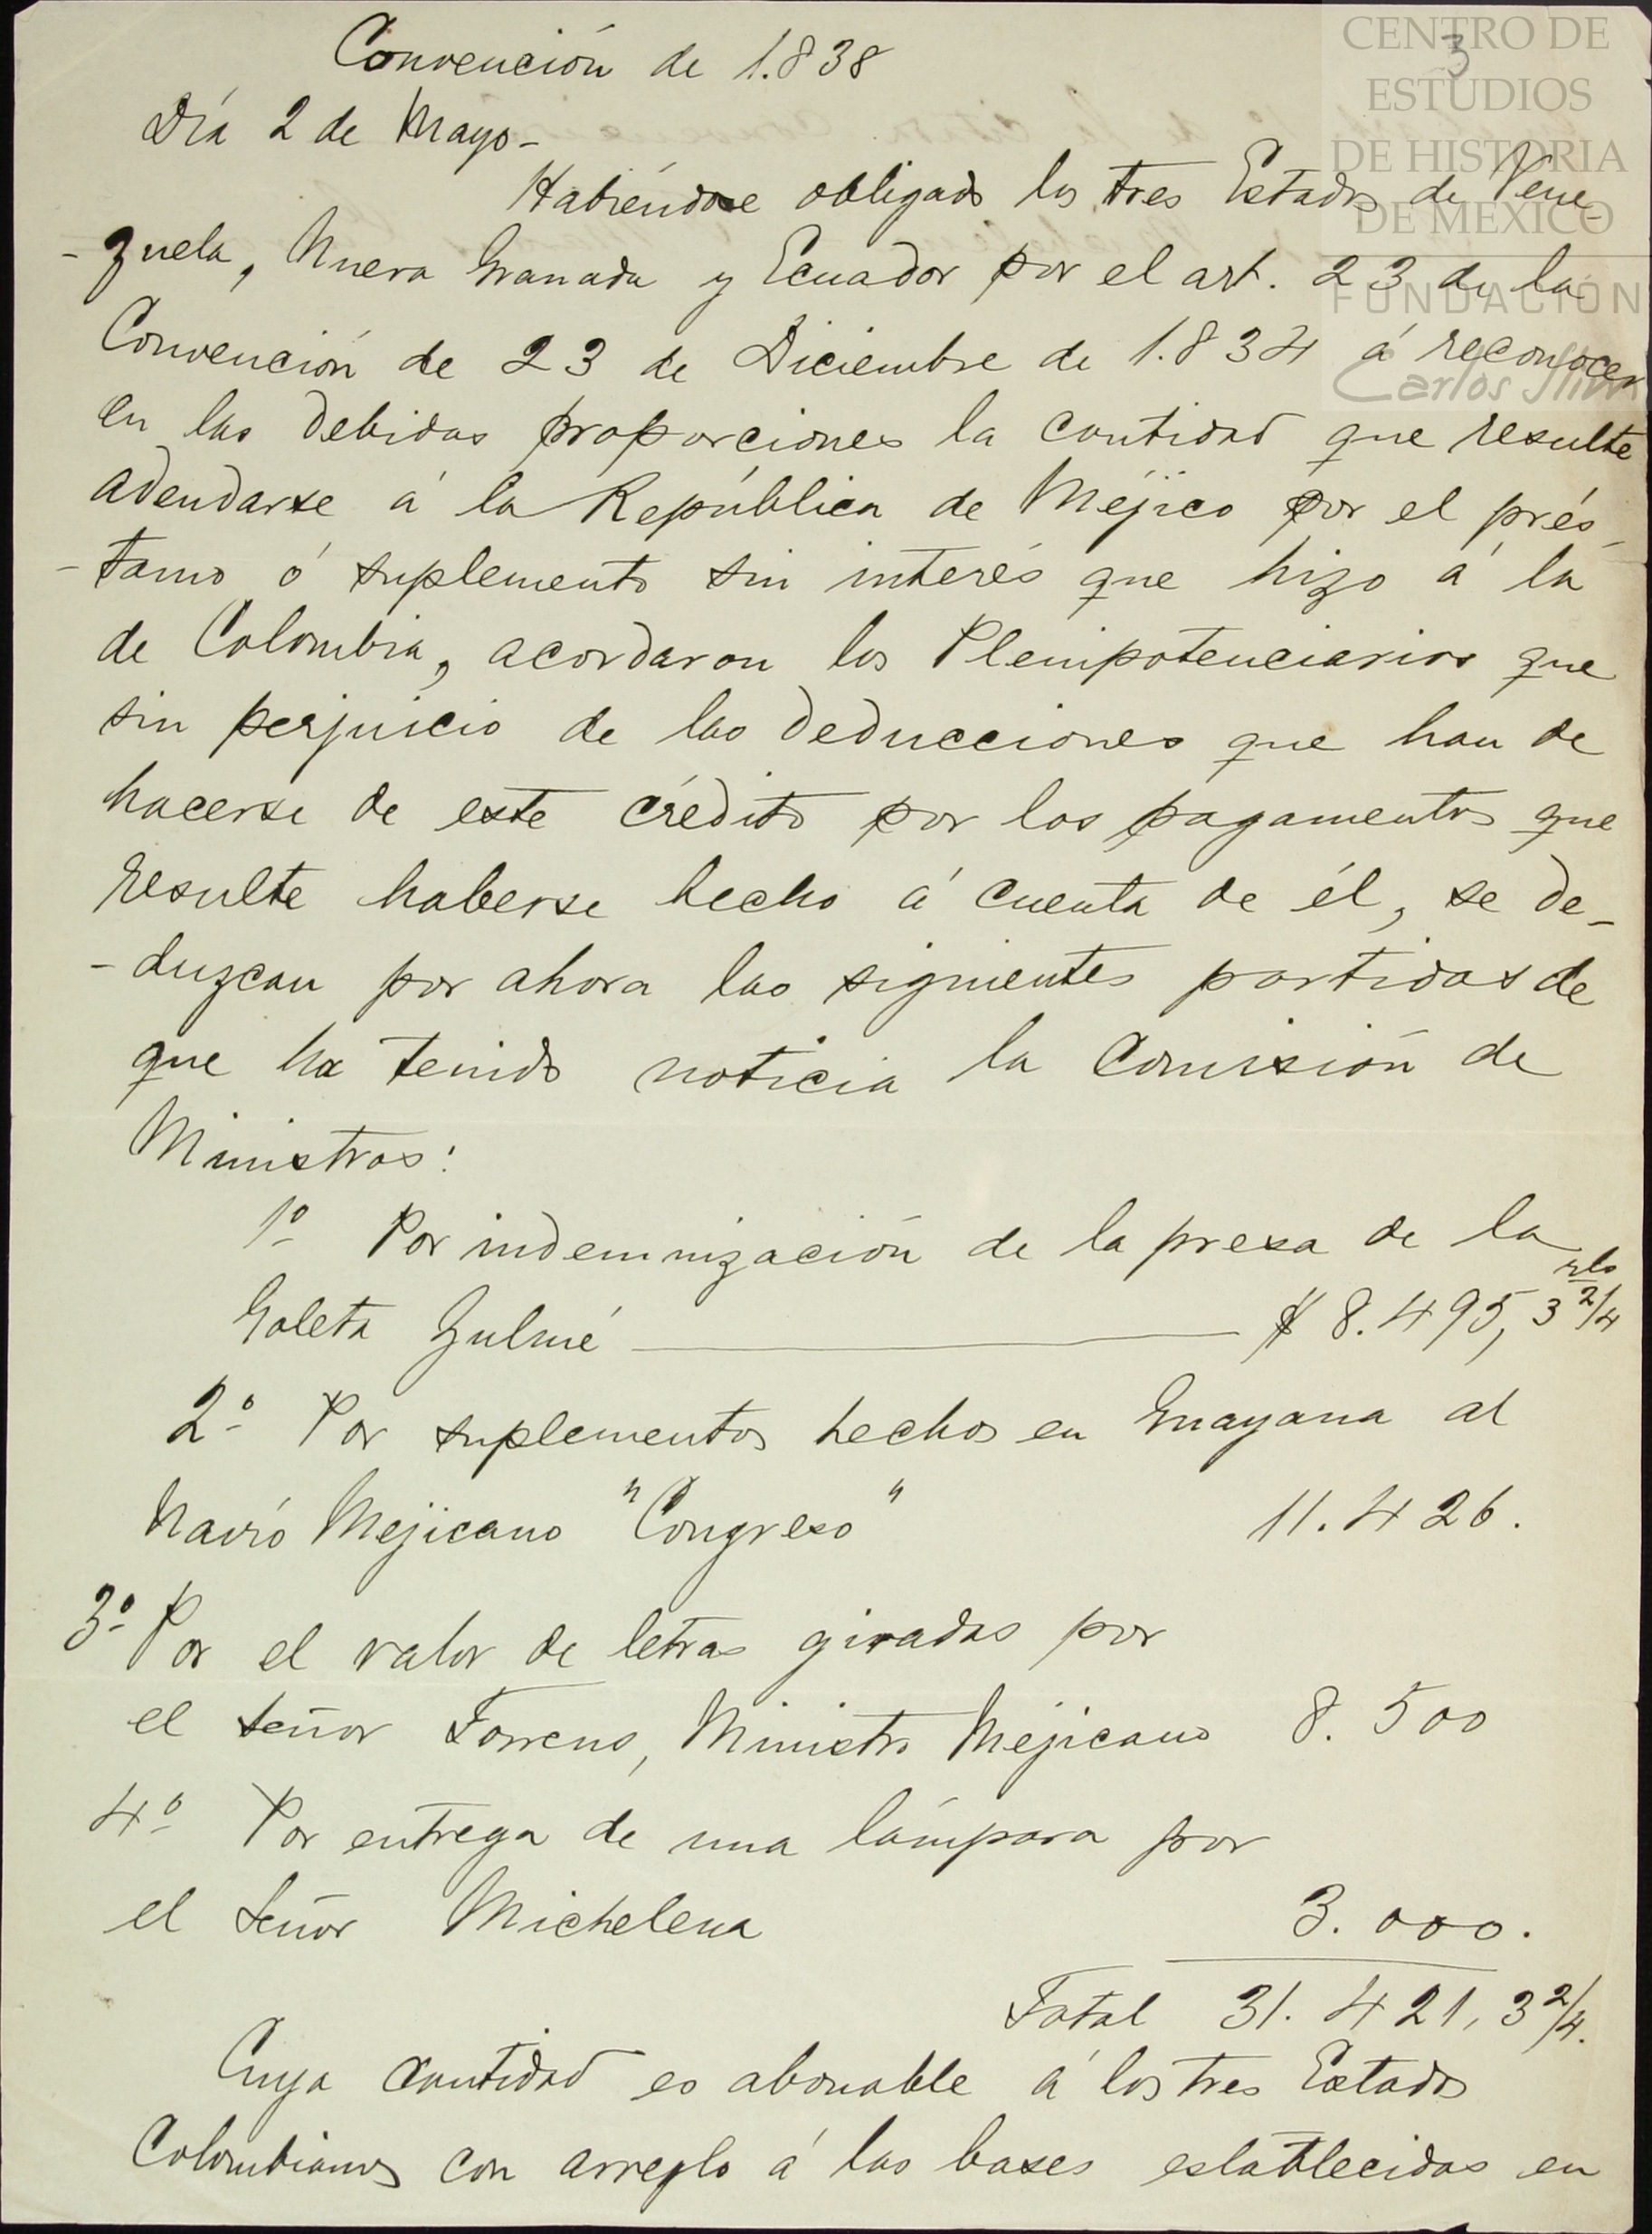 CENTRO DE
ESTUDIOS
DE HISTORIA
DE MEXICO
FUNDACIÓN
Carlos Slim
3
Convención de 1.838
Día 2 de Mayo-
Habiéndose obligado los tres Estados de Vene-
-zuela, Nueva Granada y Ecuador por el art. 23 de la
Convención de 23 de Diciembre de 1.834 á reconocer
en las debidas proporciones la cantidad que resulte
adeudarse á la República de Méjico por el prés-
-tamo ó suplemento sin interés que hizo á la
de Colombia, acordaron los Plenipotenciarios que
sin perjuicio de las deducciones que han de
hacerse de este crédito por los pagamentos que
resulte haberse hecho á cuenta de él, se de-
-duzcan por ahora las siguientes partidas de
que ha tenido noticia la Comisión de
Ministros:
1º Por indemnización de la presa de la
Goleta Zulmé $ 8.495, 3 2/4 rls
2º Por suplementos hechos en Guayana al
Navío Mejicano "Congreso" 11.426.
3º Por el valor de letras giradas por
el señor Torrens, Ministro Mejicano 8.500
4º Por entrega de una lámpara por
el señor Michelena 3.000.
Total 31.421, 3 2/4.
Cuya cantidad es abonable á los tres Estados
Colombianos con arreglo á las bases establecidas en